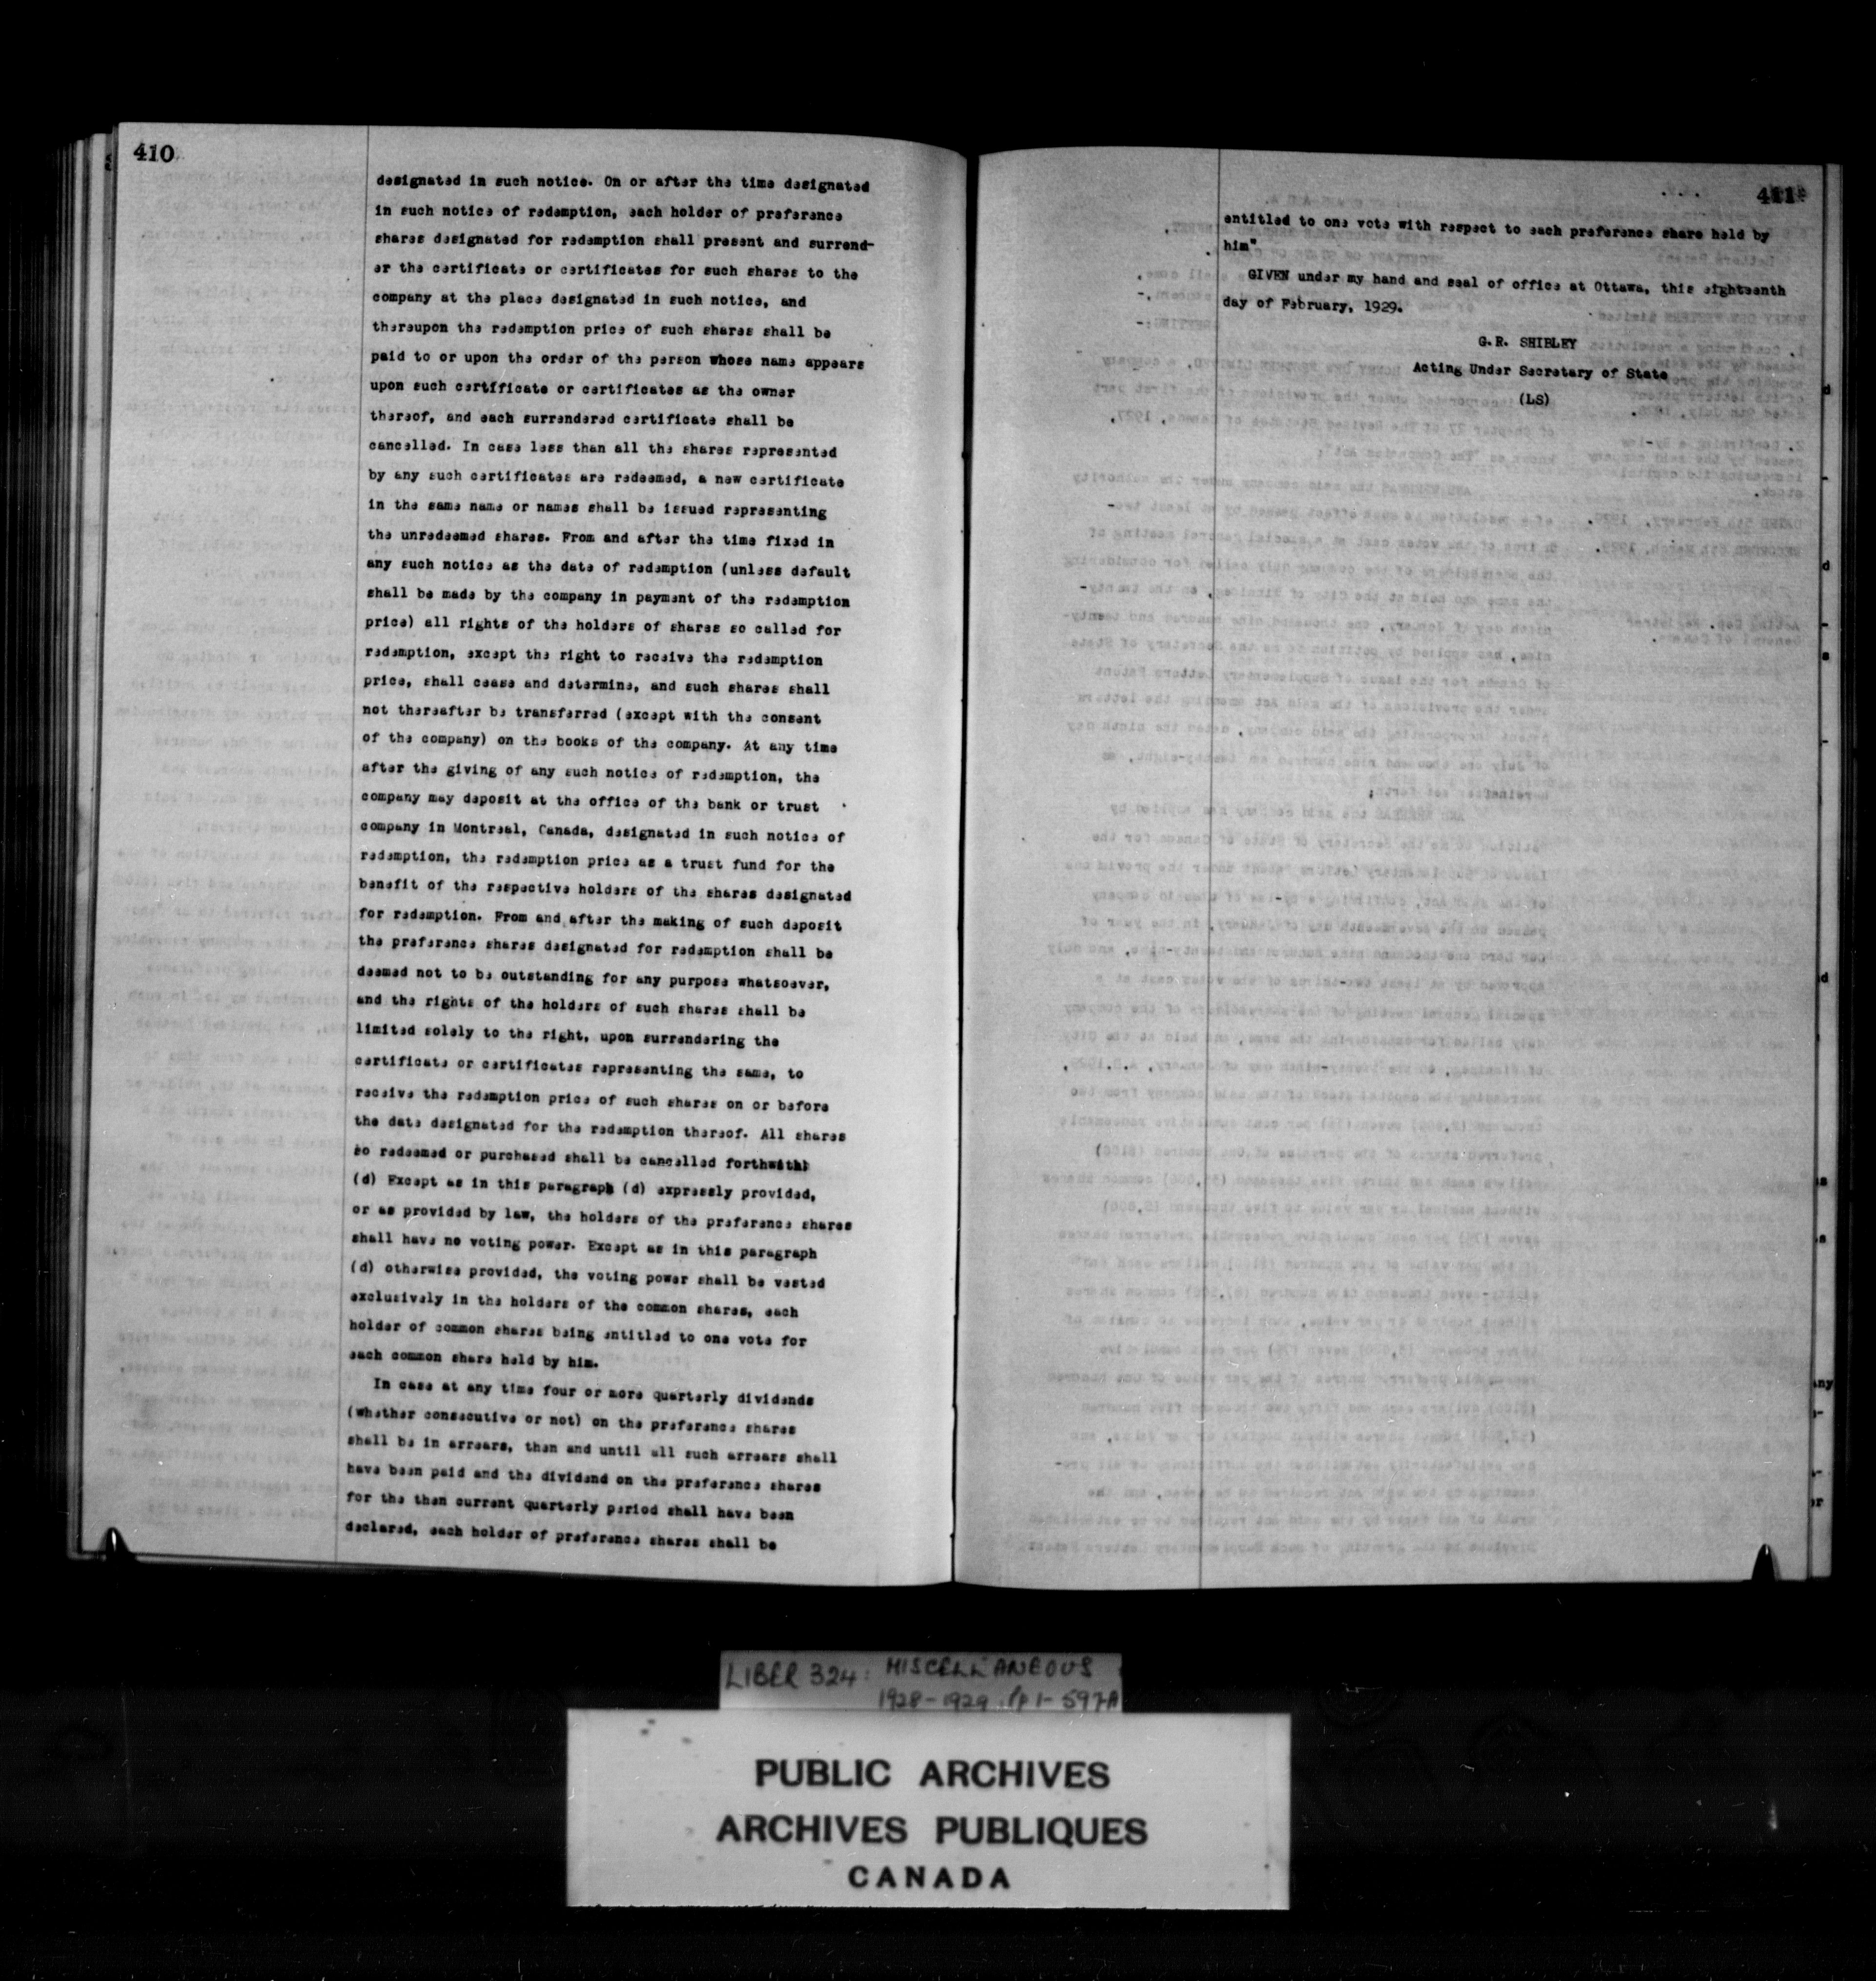 410
designated in such notice. On or after the time designated
in such notice of redemption, each holder of preference
shares designated for redemption shall present and surrend-
er the certificate or certificates for such shares to the
company at the place designated in such notice, and
thereupon the redemption price of such shares shall be
paid to or upon the order of the person whose name appears
upon such certificate or certificates as the owner
thereof, and each surrendered certificate shall be
cancelled. In case less than all the shares represented
by any such certificates are redeemed, a new certificate
in the same name or names shall be issued representing
the unredeemed shares. From and after the time fixed in
any such notice as the date of redemption (unless default
shall be made by the company in payment of the redemption
price) all rights of the holders of shares so called for
redemption, except the right to receive the redemption
price, shall cease and determine, and such shares shall
not thereafter be transferred (except with the consent
of the company) on the books of the company. At any time
after the giving of any such notice of redemption, the
company may deposit at the office of the bank or trust
company in Montreal, Canada, designated in such notice of
redemption, the redemption price as a trust fund for the
benefit of the respective holders of the shares designated
for redemption. From and after the making of such deposit
the preference shares designated for redemption shall be
deemed not to be outstanding for any purpose whatsoever,
and the rights of the holders of such shares shall be
limited solely to the right, upon surrendering the
certificate or certificates representing the same, to
receive the redemption price of such shares on or before
the date designated for the redemption thereof. All shares
so redeemed or purchased shall be cancelled forthwith
(d) Except as in this paragraph (d) expressly provided,
or as provided by law, the holders of the preference shares
shall have no voting power. Except as in this paragraph
(d) otherwise provided, the voting power shall be vested
exclusively in the holders of the common shares, each
holder of common shares being entitled to one vote for
each common share held by him.
In case at any time four or more quarterly dividends
(whether consecutive or not) on the preference shares
shall be in arrears, then and until all such arrears shall
have been paid and the dividend on the preference shares
for the then current quarterly period shall have been
declared, each holder of preference shares shall be
411
entitled to one vote with respect to each preference share held by
him"
GIVEN under my hand and seal of office at Ottawa, this eighteenth
day of February, 1929.
G.R. SHIBLEY
Acting Under Secretary of State
(LS)
LIBER 324: MISCELLANEOUS
1928-1929 PP 1-597A
PUBLIC ARCHIVES
ARCHIVES PUBLIQUES
CANADA